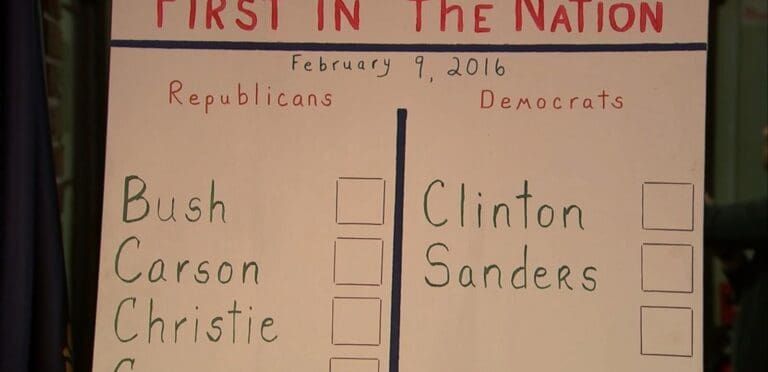 FIRST IN THE NATION
February 9, 2016
Republicans
Democrats
Bush
Carson
Christie
Clinton
Sanders